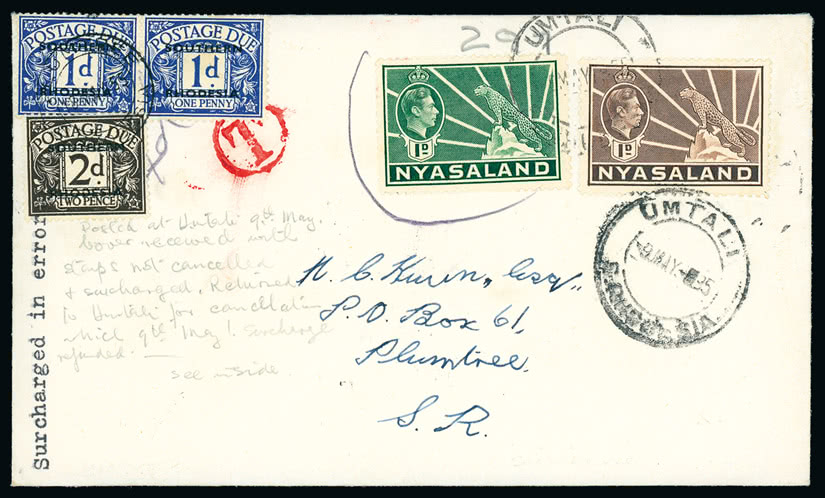 POSTAGE DUE
SOUTHERN
1d
RHODESIA
ONE PENNY
POSTAGE DUE
SOUTHERN
1d
RHODESIA
ONE PENNY
POSTAGE DUE
SOUTHERN
2d
RHODESIA
TWO PENCE
T
UMTALI
MAY
1D
NYASALAND
1D
NYASALAND
UMTALI
9 MAY
S. RHODESIA
Surcharged in error
Posted at Umtali 9th May.
Cover received with
stamps not cancelled
& surcharged. Returned
to Umtali for cancellation
which 9th May! Surcharge
refunded. —
see inside
Esqr,
P.O. Box 61,
Plumtree,
S. R.